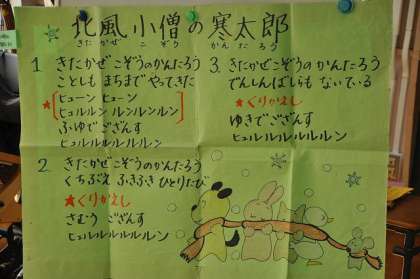 北風小僧の寒太郎
きたかぜ こぞう かんたろう
1. きたかぜこぞうのかんたろう
ことしも まちまでやってきた
★ ヒューン ヒューン
ヒューン ルンルンルン
ふゆでござんす
ヒュルルルルルルン
2. きたかぜこぞうのかんたろう
くちぶえ ふきふき ひとりたび
★くりかえし
さむう ござんす
ヒュルルルルルルン
3. きたかぜこぞうのかんたろう
でんしんばしらも ないている
★くりかえし
ゆきでござんす
ヒュルルルルルルン